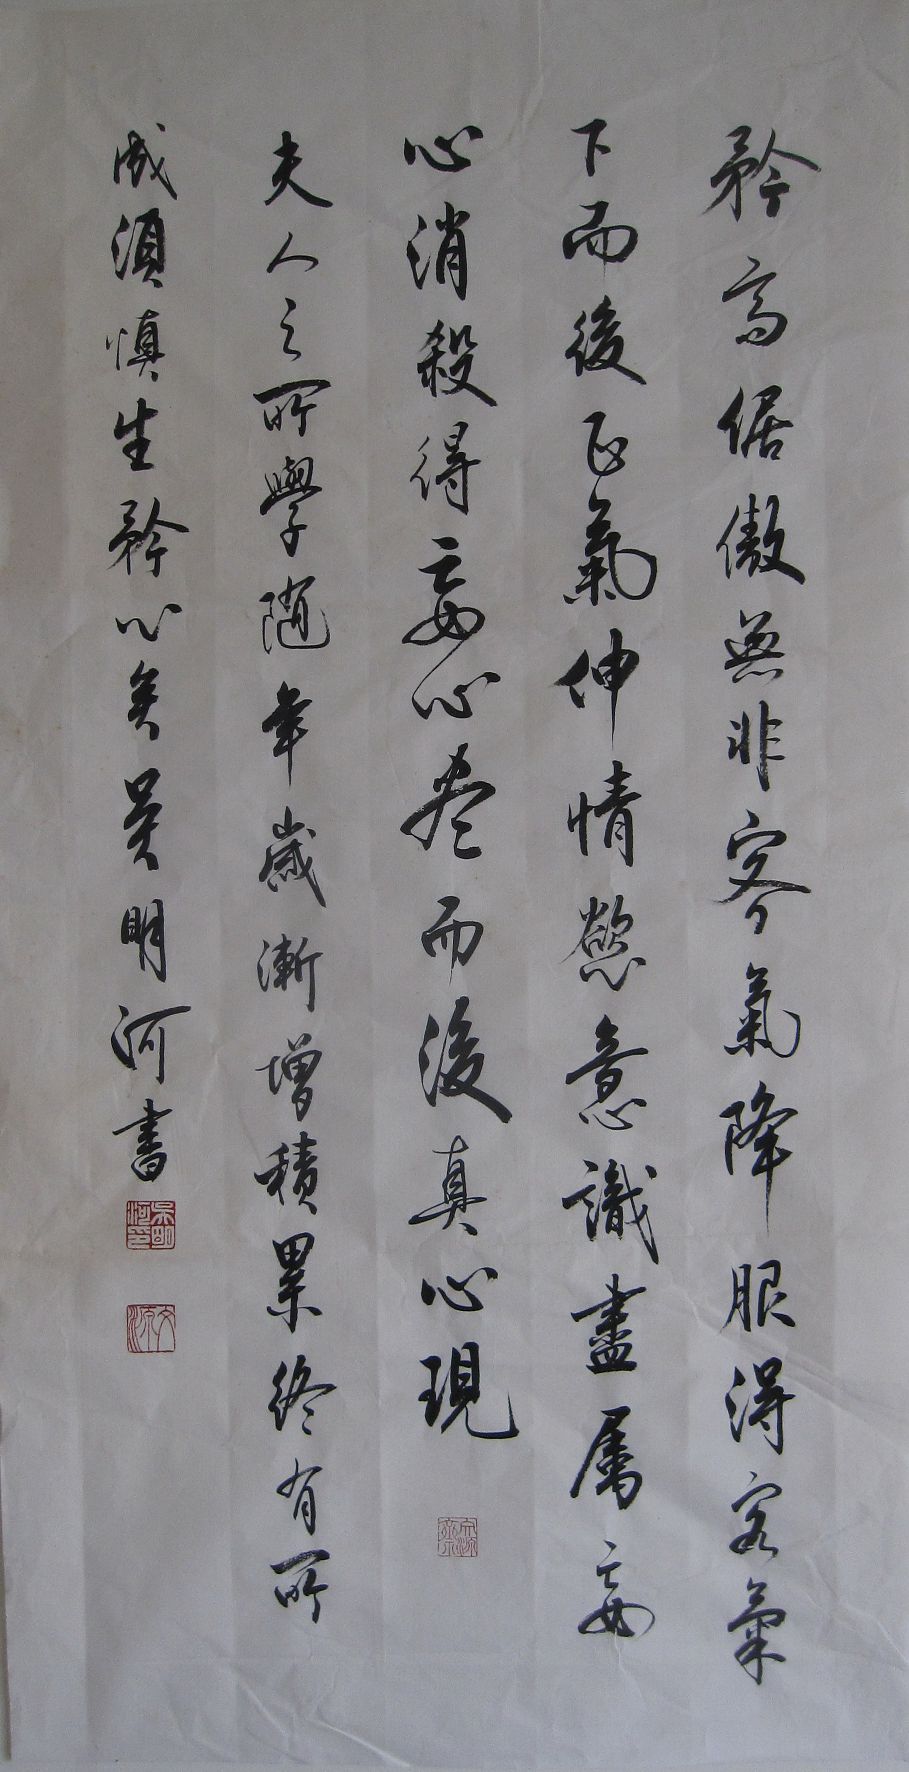 矜高倨傲無非客氣降服得客氣
下而後正氣伸情慾意識盡屬妄
心消殺得妄心盡而後真心現
夫人之所學隨年歲漸增積累終有所
成須慎生矜心矣吳明河書
吳明河印